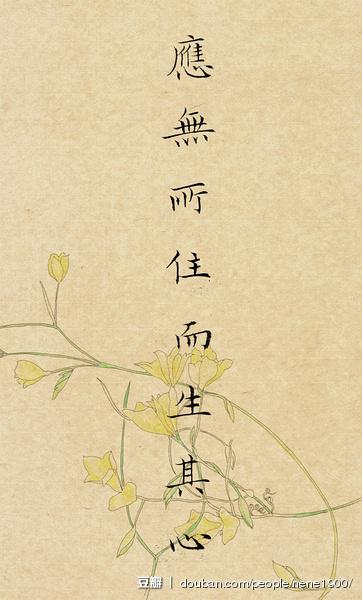 應無所住而生其心
豆瓣 | douban.com/people/nene1900/